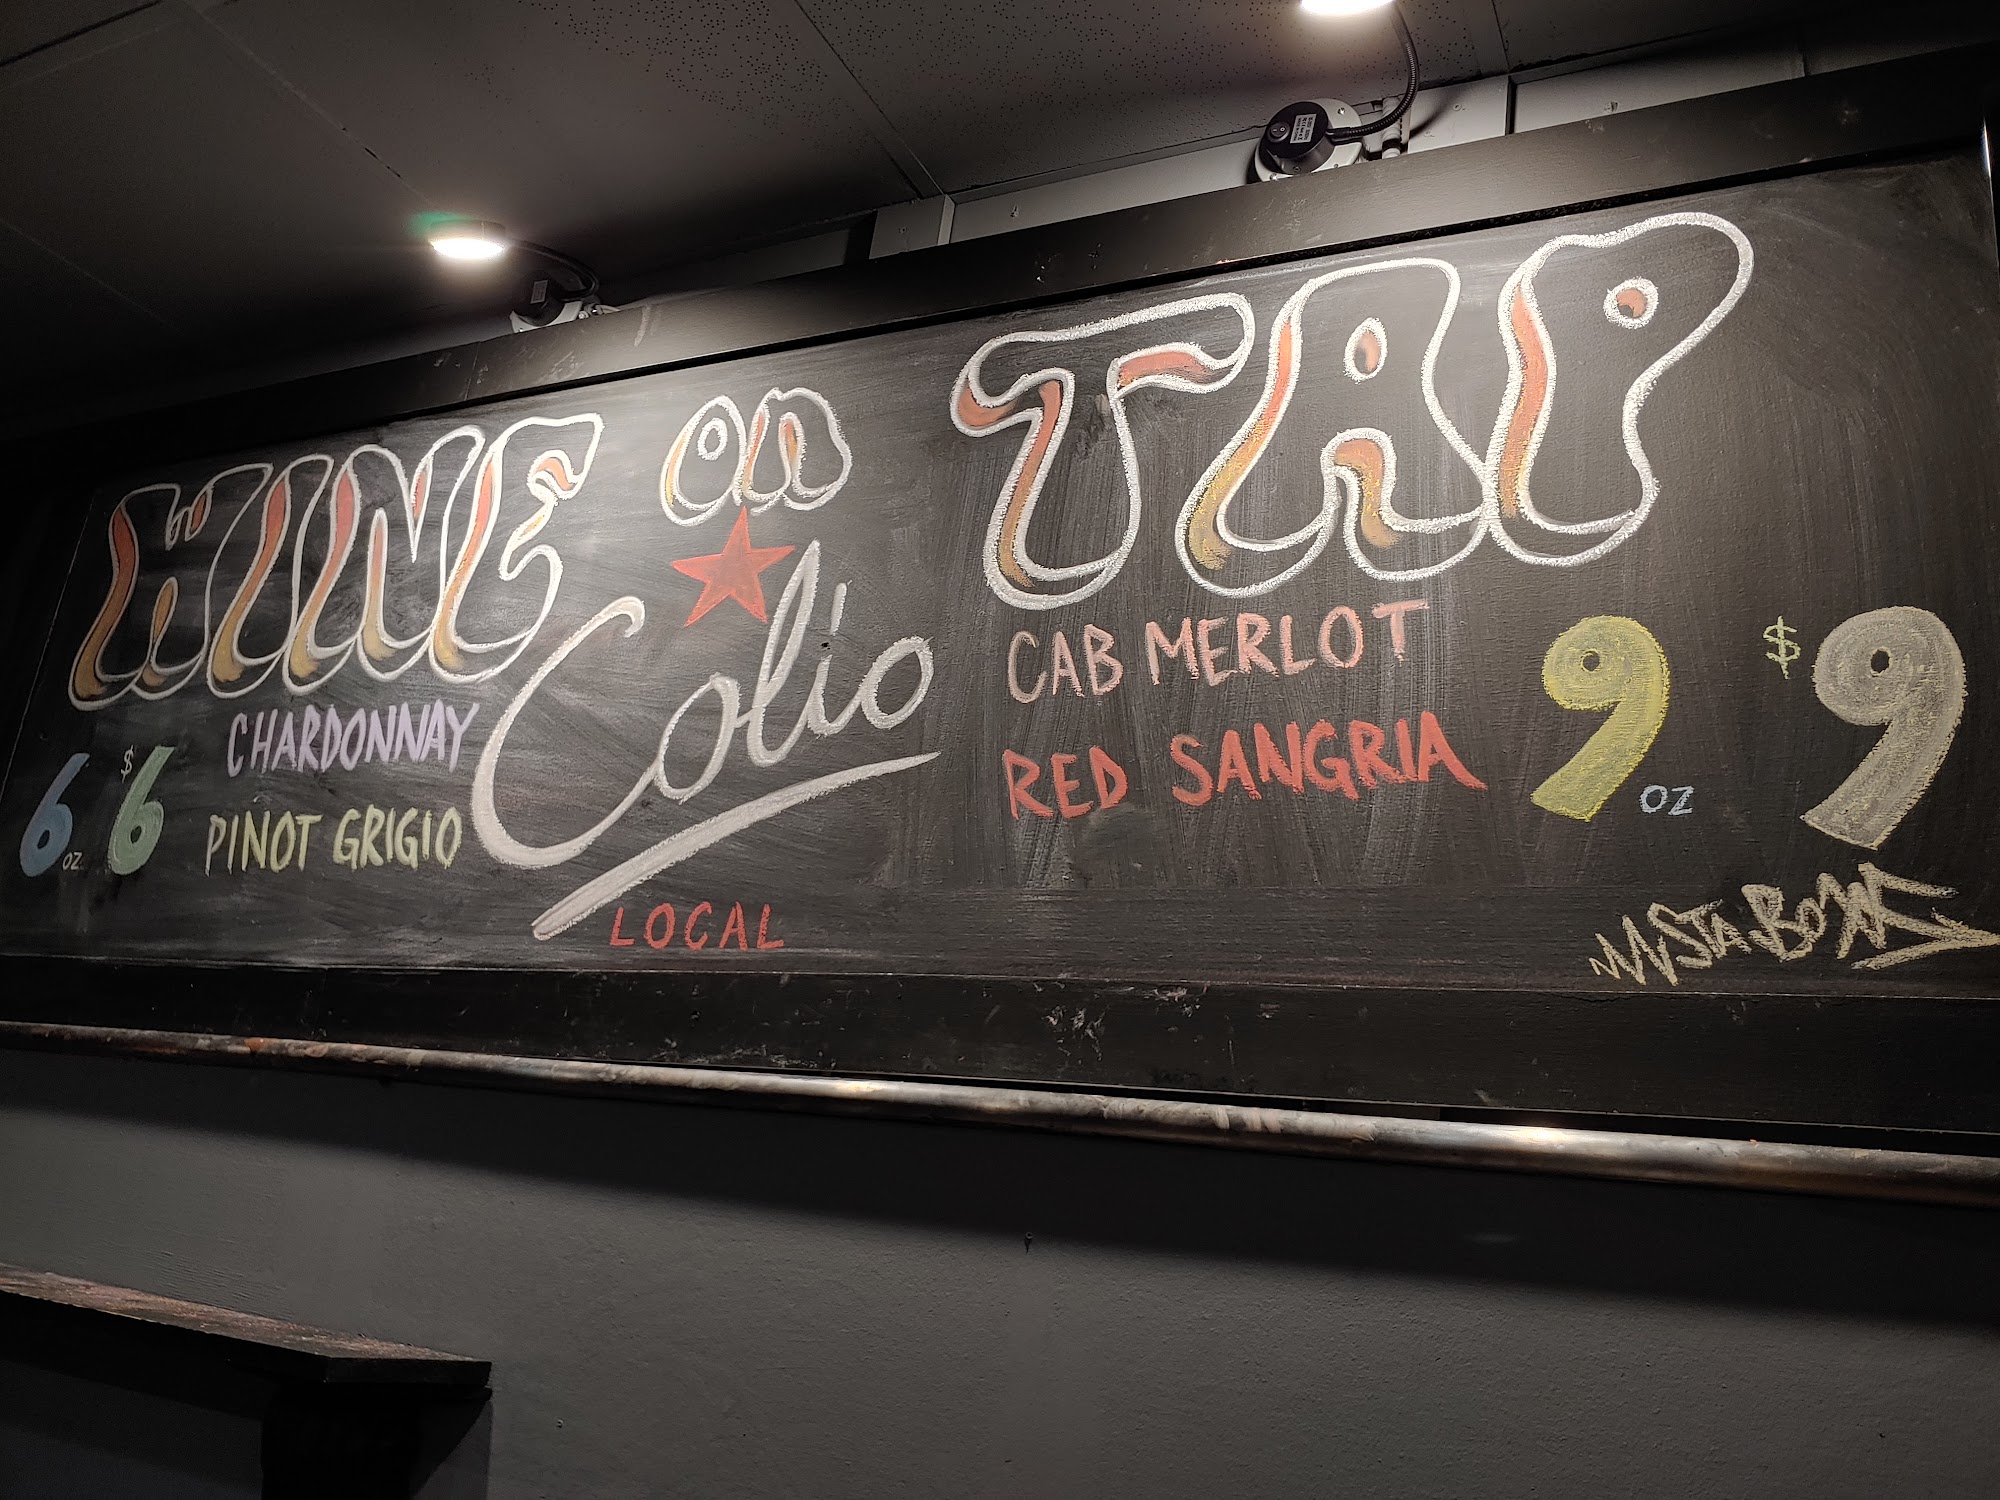 WINE on TAP
Colio
LOCAL
6 oz $6
CHARDONNAY
PINOT GRIGIO
CAB MERLOT
RED SANGRIA
9 oz $9